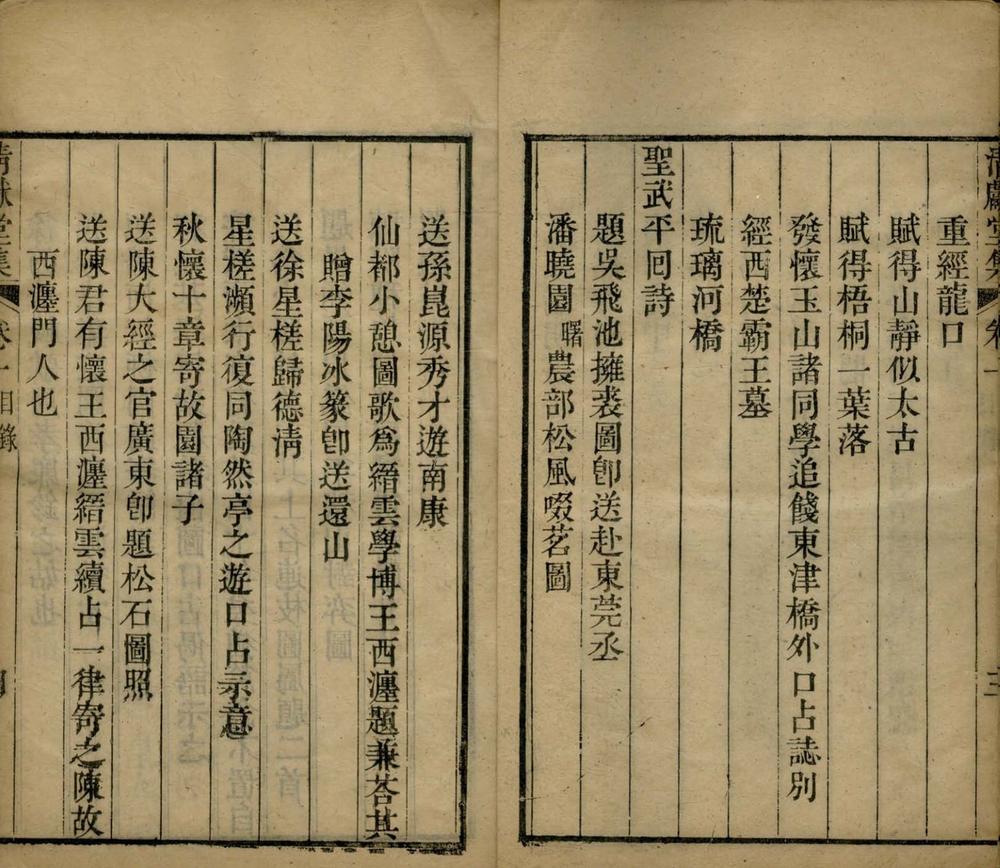 清獻堂集 卷一 三
重經龍口
賦得山靜似太古
賦得梧桐一葉落
發懷玉山諸同學追餞東津橋外口占誌別
經西楚霸王墓
琉璃河橋
聖武平回詩
題吳飛池擁裘圖卽送赴東莞丞
潘曉園曙農部松風啜茗圖
送孫崑源秀才遊南康
仙都小憩圖歌爲縉雲學博王西瀍題兼荅其
贈李陽冰篆卽送還山
送徐星槎歸德淸
星槎瀕行復同陶然亭之遊口占示意
秋懷十章寄故園諸子
送陳大經之官廣東卽題松石圖照
送陳君有懷王西瀍縉雲續占一律寄之陳故
西瀍門人也
清獻堂集 卷一目錄 四